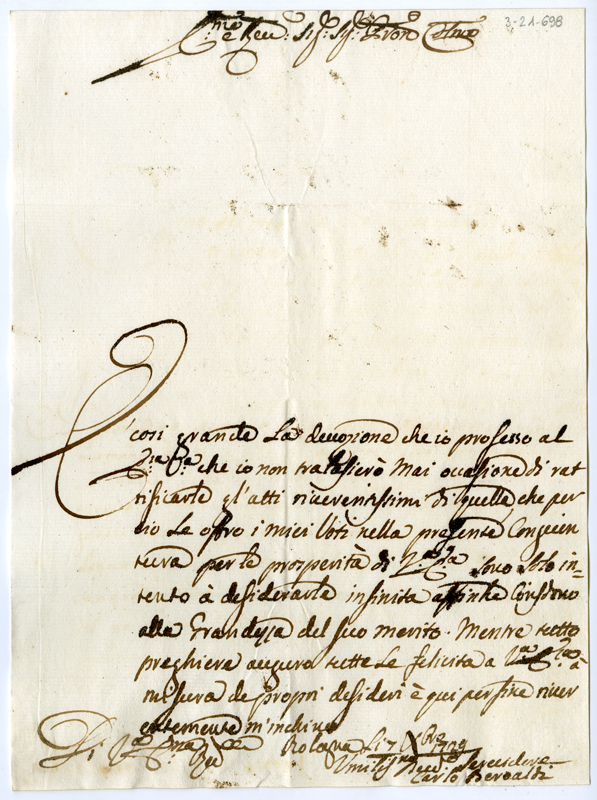 3-21-698
e Reu: Sig: Sig: Pron Colmo
E così grande la deuozione che io professo al
che io non tralasierò mai ocasione di rat
tificarle gl'atti riuerentissimi di quella che per
cio le offro i miei Voti nella presente Congiun
tura per le prosperità di sono solo in=
tento à desiderarle infinita affinche
alla Grandezza del suo merito. Mentre tutto
preghiera auguro tutte le felicità a à
misura de proprij desideri è qui per fine riuer
entemente m'inchino
Di Bologna li
Seruidore
Carlo Beroaldi